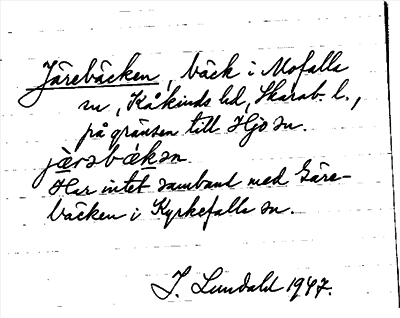 Järebäcken, bäck i Mofalla
sn, Kåkinds hd, Skarab. l.,
på gränsen till Hjo sn.
jæ̀rəbǽkən
Har intet samband med Gäre-
bäcken i Kyrkefalla sn.
I. Lundahl 1947.